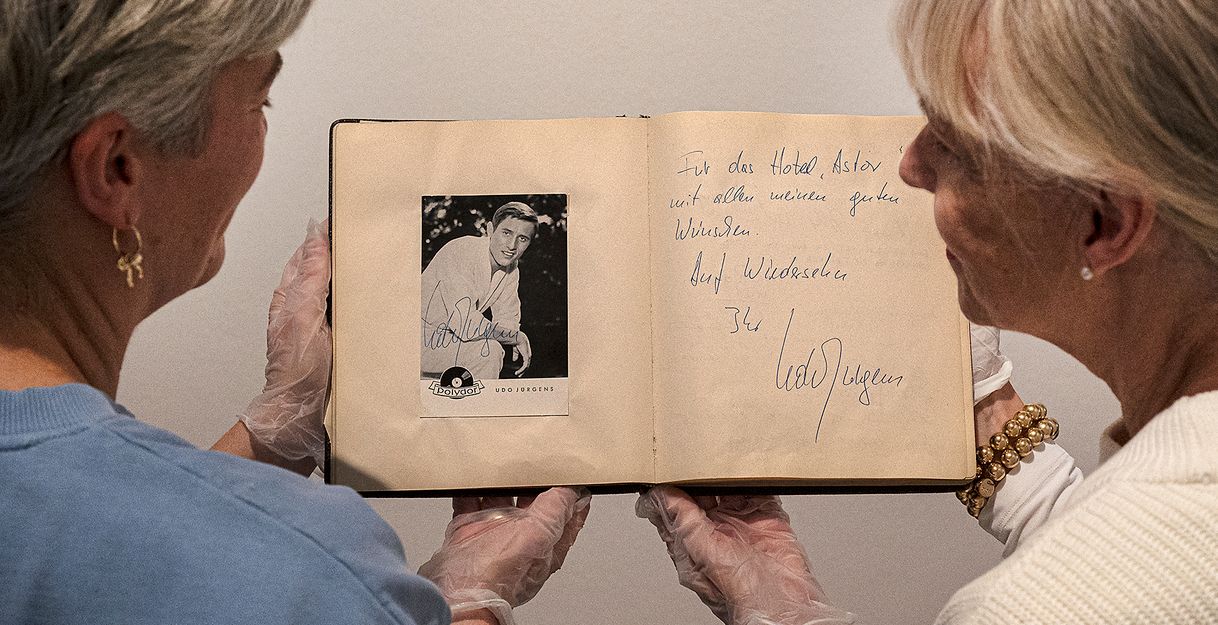 Udo Jürgens
polydor
UDO JÜRGENS
Für das Hotel „Astor“
mit allen meinen guten
Wünschen.
Auf Wiedersehn
Ihr
Udo Jürgens